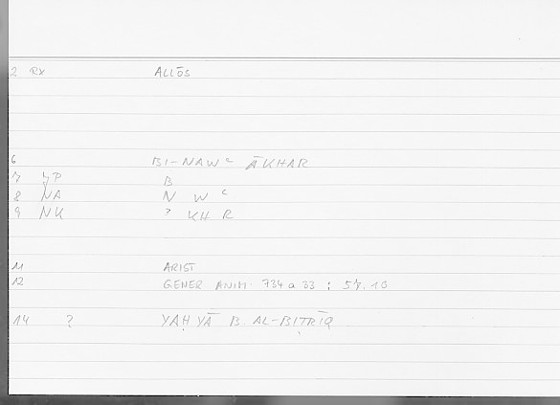 2 RX ALLŌS
6 BI-NAWᶜ ĀKHAR
7 YP B
8 NA N W ᶜ
9 NK ʾ KH R
11 ARIST
12 GENER ANIM 734 a 33 ; 57.10
14 ? YAḤYĀ B. AL-BIṬRĪQ